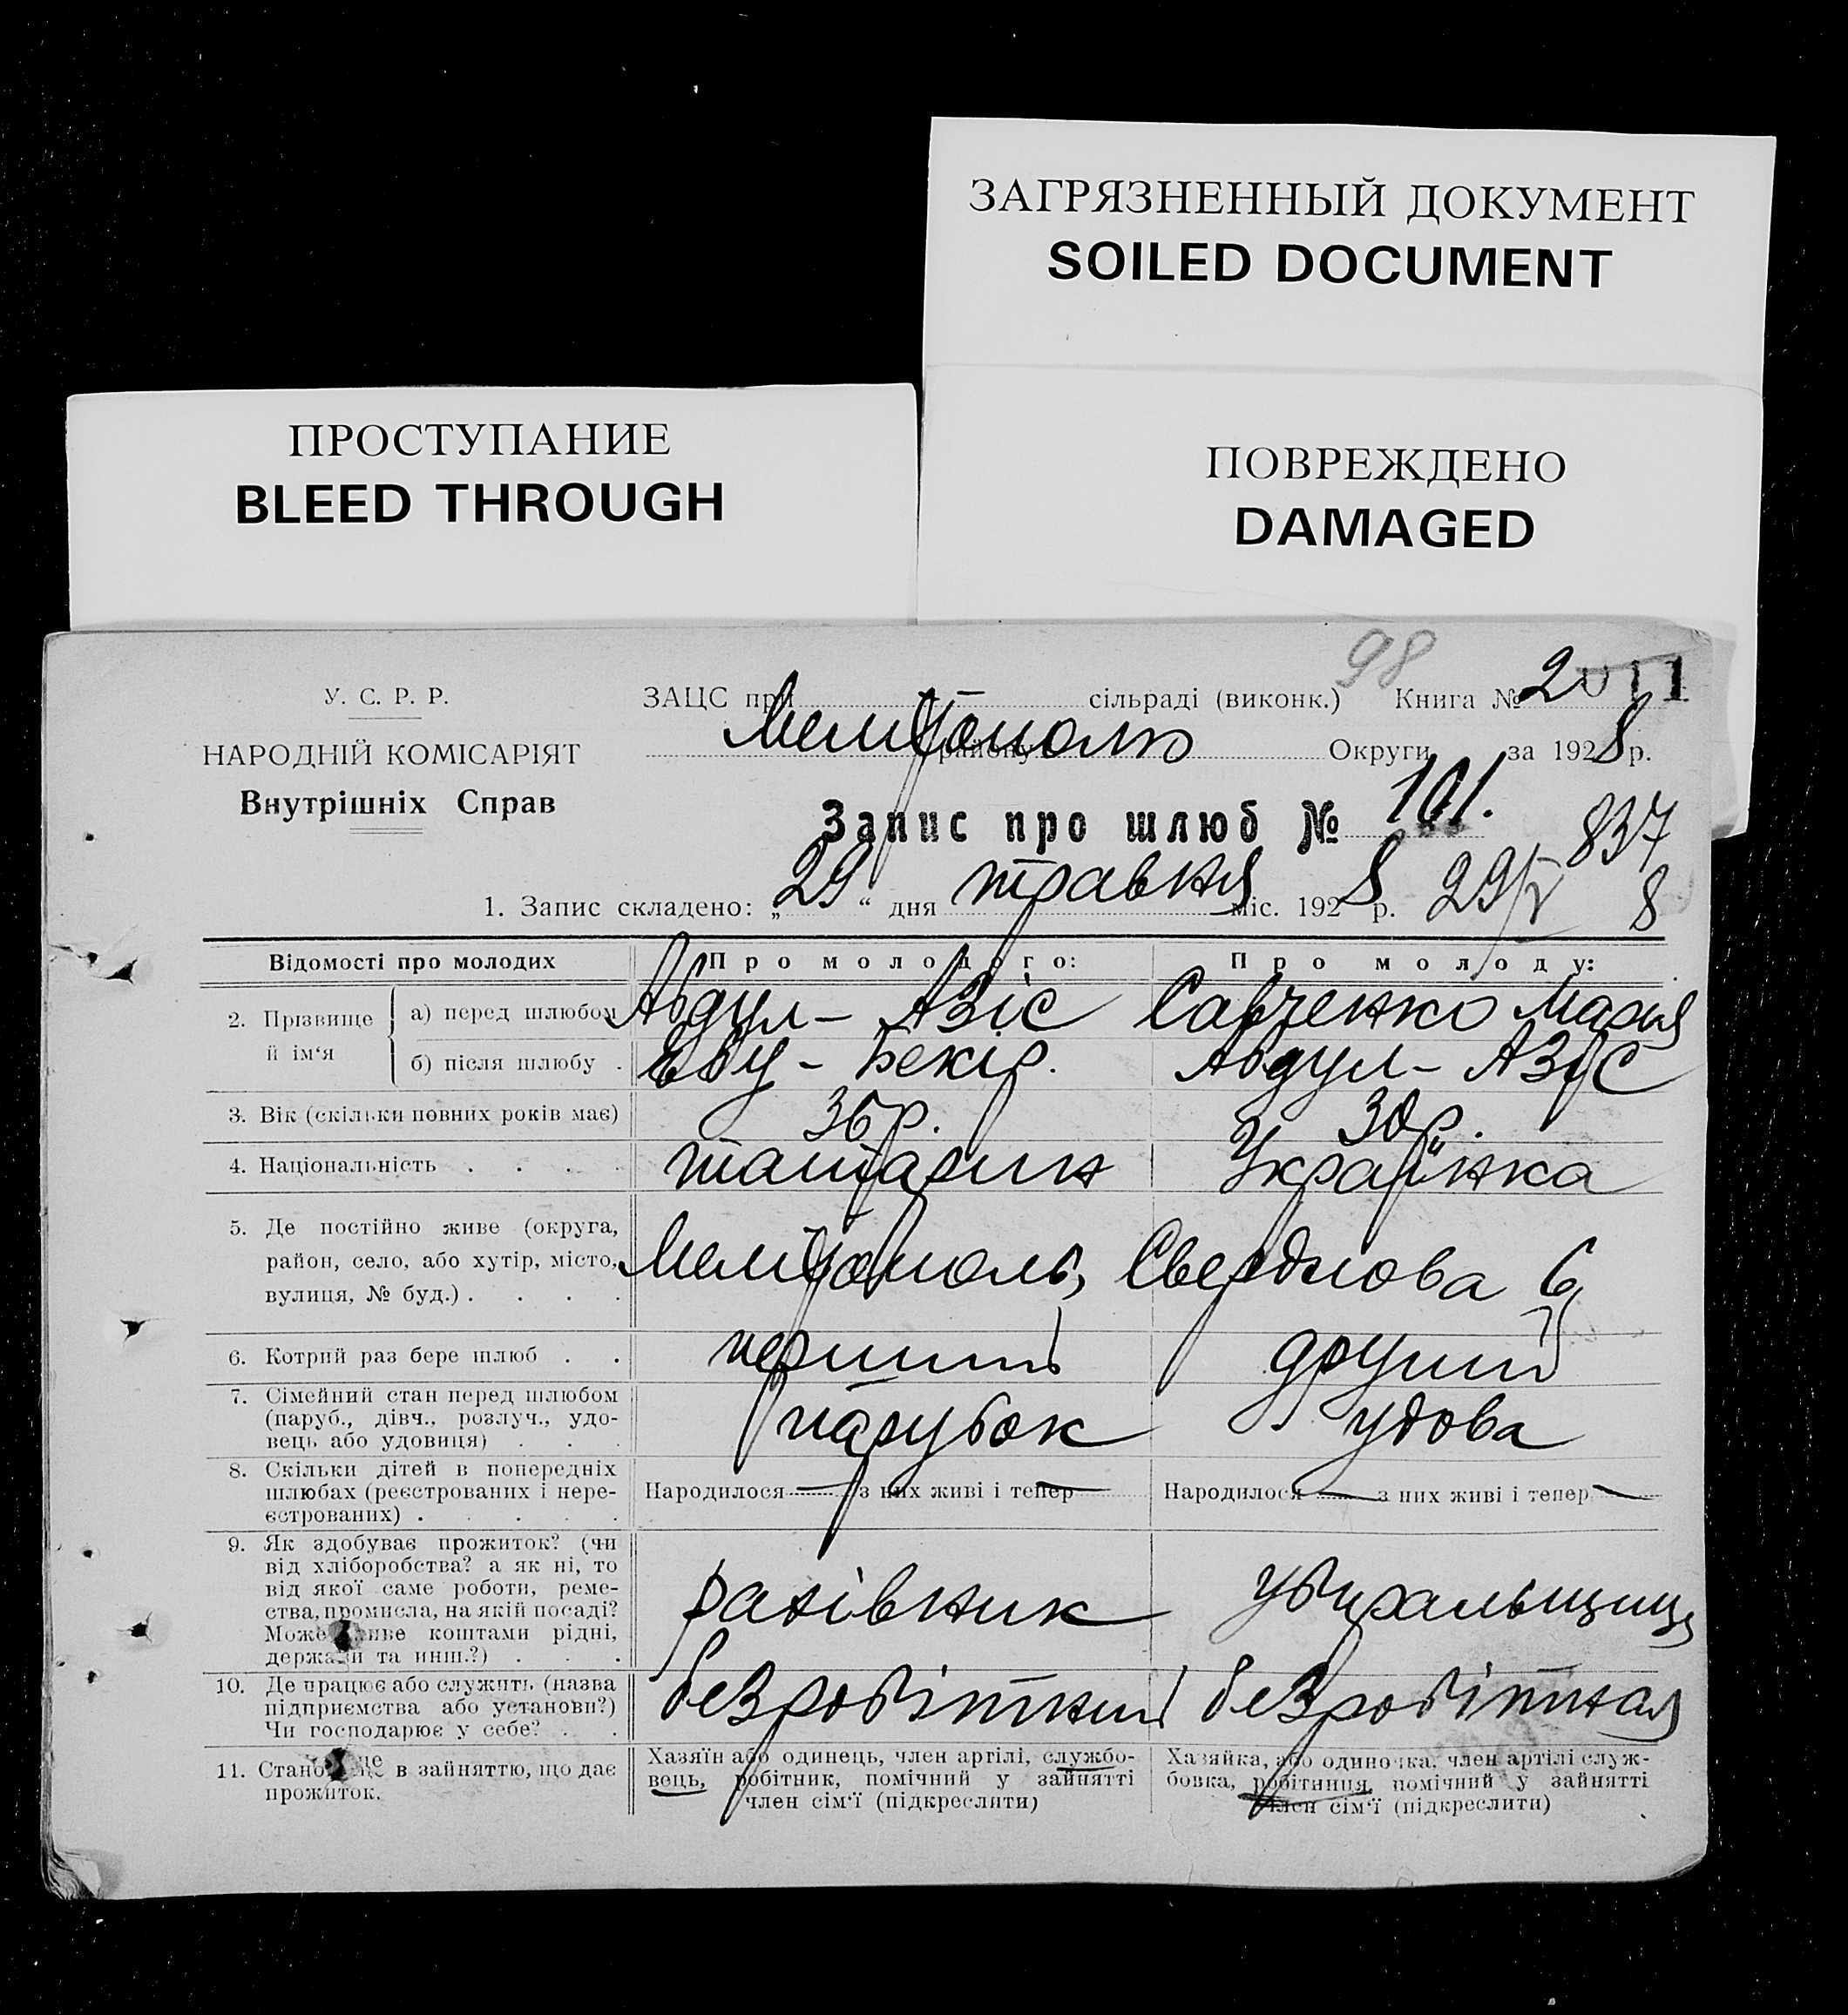 ЗАГРЯЗНЕННЫЙ ДОКУМЕНТ
SOILED DOCUMENT
ПРОСТУПАНИЕ
BLEED THROUGH
ПОВРЕЖДЕНО
DAMAGED
98
У. С. Р. Р.
ЗАЦС при сільраді (виконк.) Книга № 2
НАРОДНІЙ КОМІСАРІЯТ
Мелітополю району Округи за 1928 р.
Внутрішніх Справ
Запис про шлюб № 101.
837
1. Запис складено: „29“ дня травня міс. 1928 р. 29/V 8
Відомості про молодих Про молодого: Про молоду:
2. Прізвище й ім'я
а) перед шлюбом Абдул-Азіс Савченко Марія
б) після шлюбу . Ебу-Бекір. Абдул-Азіс
3. Вік (скільки повних років має) 36 р. 30 р.
4. Національність . . . . татарин Українка
5. Де постійно живе (округа,
район, село, або хутір, місто,
вулиця, № буд.) . . . . Мелітополь, Свердлова 6
6. Котрий раз бере шлюб . . перший другий
7. Сімейний стан перед шлюбом
(паруб., дівч., розлуч., удо-
вець або удовиця) . . . парубок удова
8. Скільки дітей в попередніх
шлюбах (реєстрованих і нере-
єстрованих) . . . . . Народилося — з них живі і тепер — Народилося — з них живі і тепер —
9. Як здобуває прожиток? (чи
від хліборобства? а як ні, то
від якої саме роботи, реме-
ства, промисла, на якій посаді?
Може живе коштами рідні,
держави та инш.?) . . .
рахівник убиральщиця
10. Де працює або служить (назва
підприємства або установи?)
Чи господарює у себе? . .
безробітний безробітная
11. Становище в зайняттю, що дає
прожиток.
Хазяїн або одинець, член артілі, службо-
вець, робітник, помічний у зайнятті
член сім'ї (підкреслити)
Хазяйка, або одиночка, член артілі служ-
бовка, робітниця, помічний у зайнятті
член сім'ї (підкреслити)